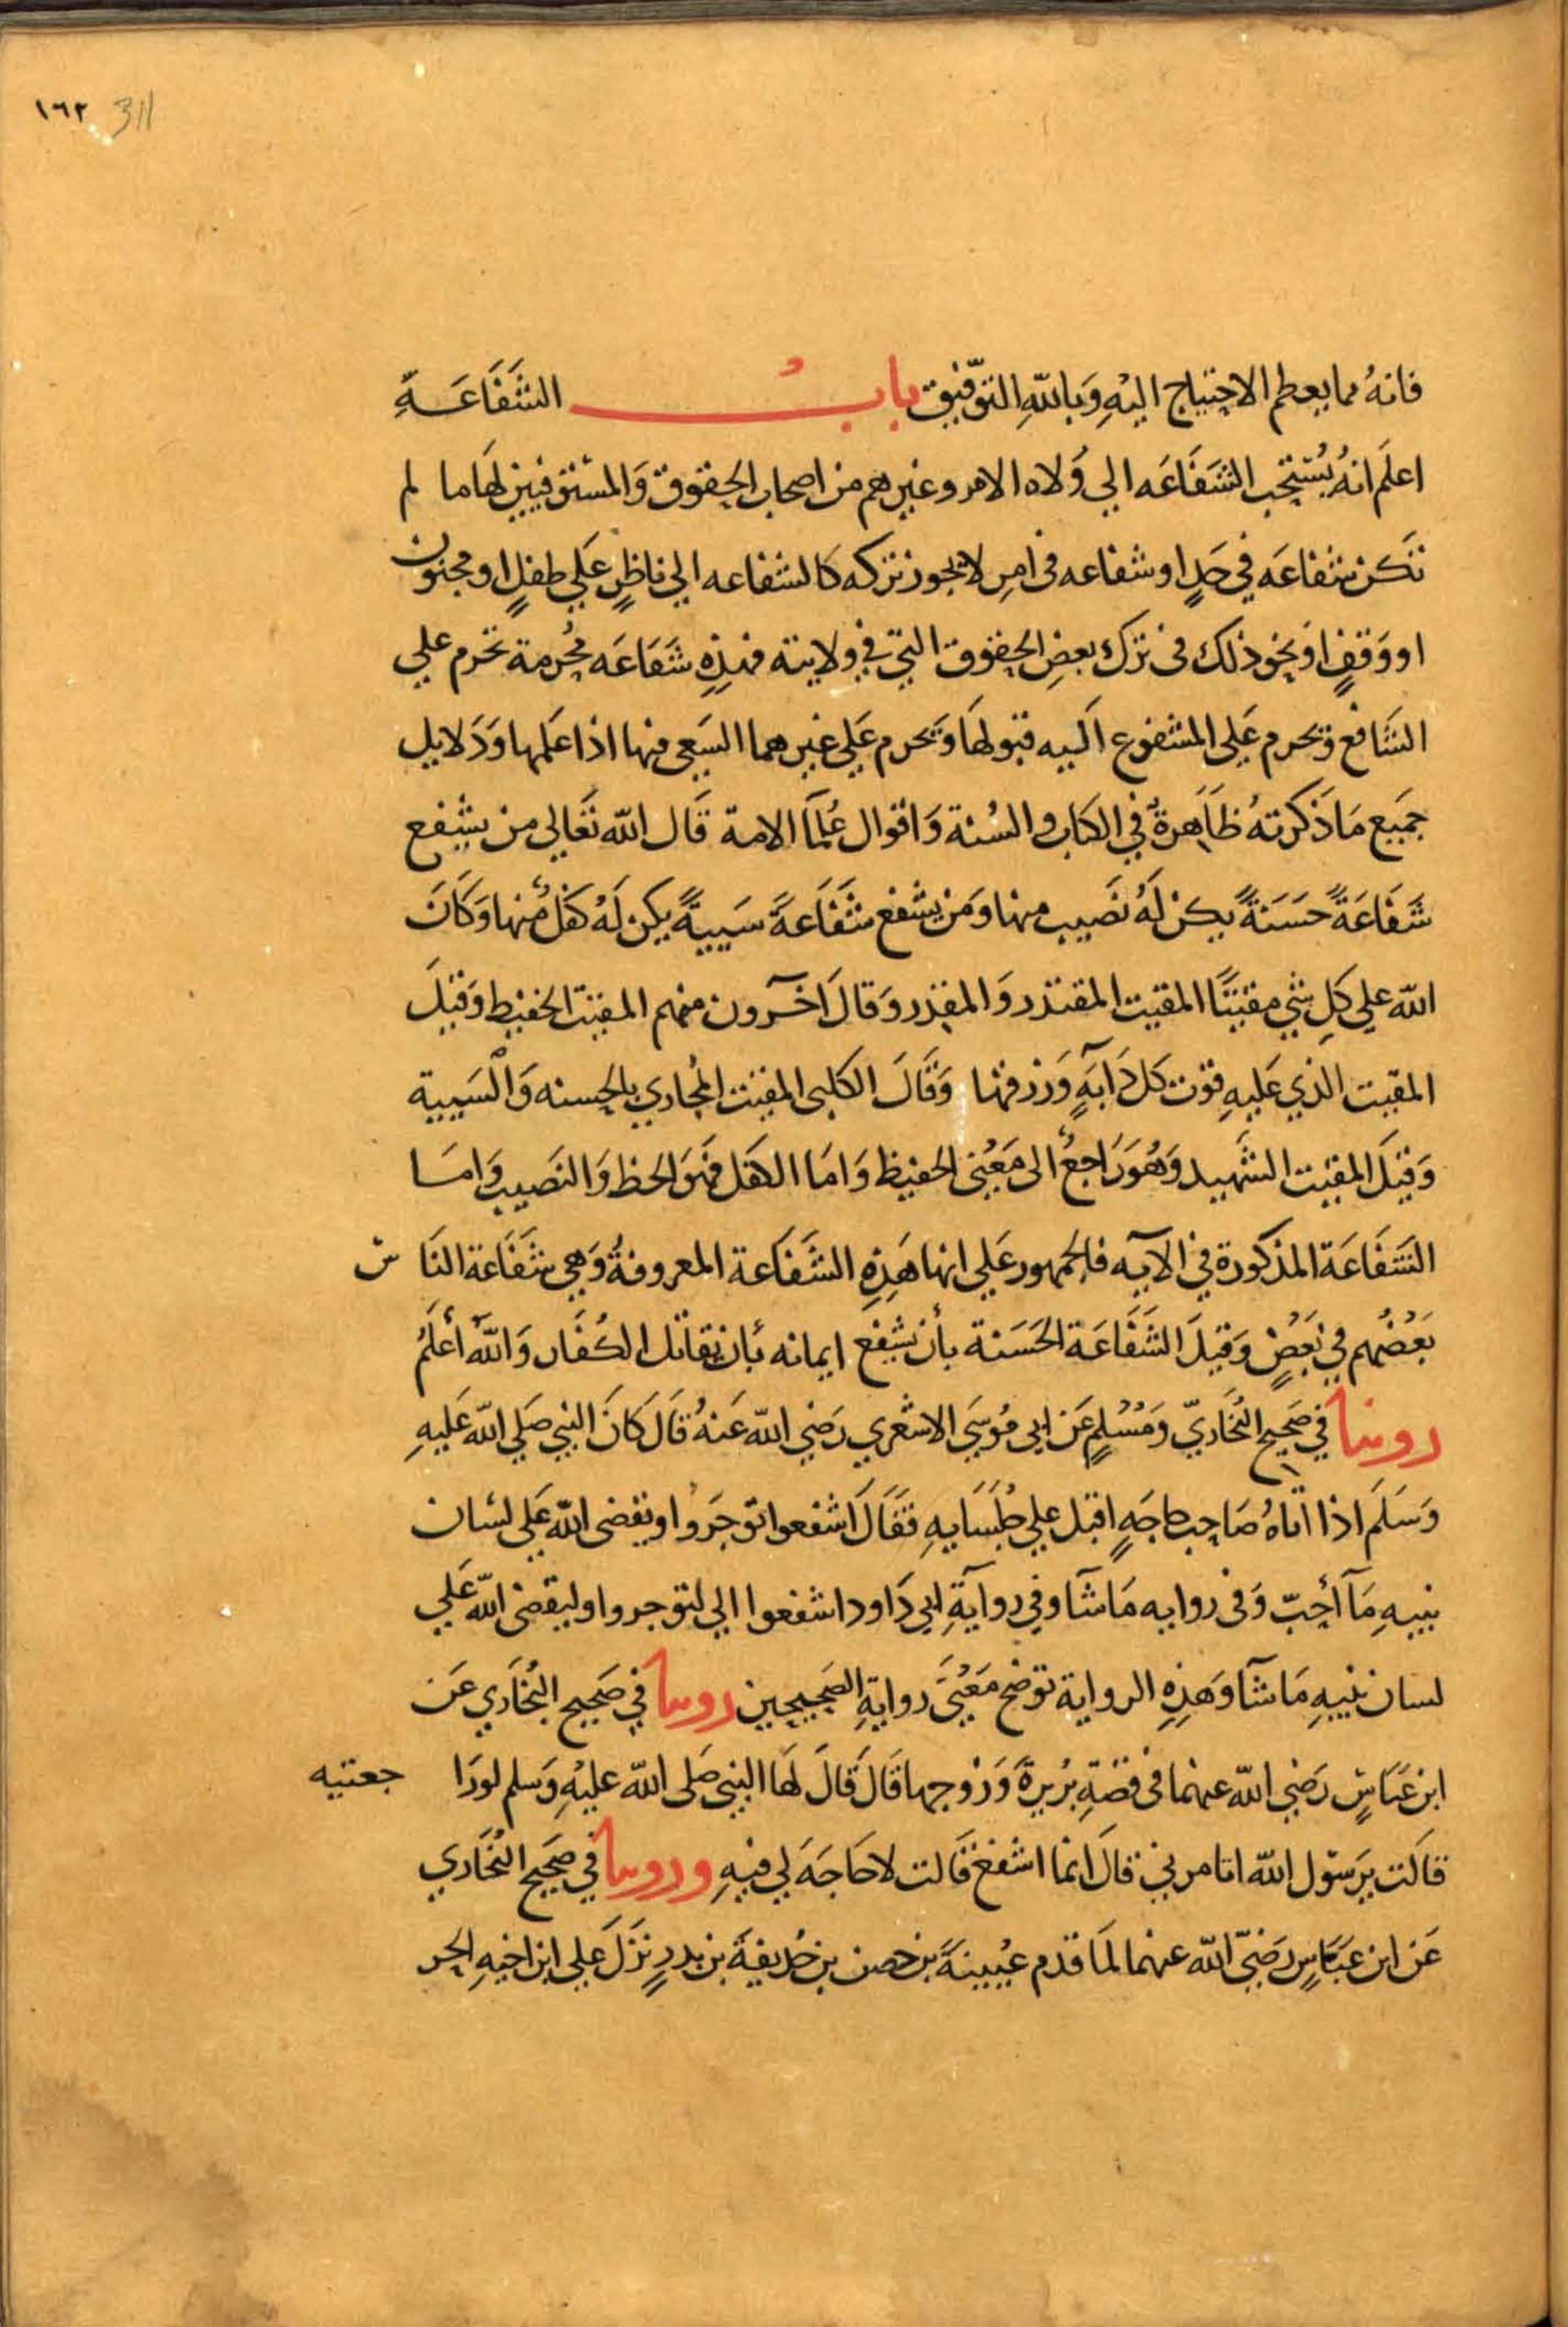 ١٦٢ 311
فانهُ مما يعطم الاحتياج اليْهِ وَبِاللّهِ التوّفيق بابُ الشَفَاعَـةِ
اعلَم انهُ يُستحَب الشَفَاعَه الي وُلاه الامر وغيرهم من اصحاب الحقوق وَالمستوفيين لهَا ما لم
تكن شفاعَه في حَدٍ او شفاعه فى امرٍ لا يجوز تركه كالشفاعه الي ناظرٍ عَلي طفلٍ او مجنون
او وَقفٍ اوَ نحو ذلك فى ترك بعضِ الحقوق التي في ولايته فهذِهِ شَفَاعَه مُحرمة تحرم علي
الشَافع وَيحرم عَلي المشفوع اَليه قبولهَا وَيحرم عَلي غيرهما السَعى فيها اذا عَلمها وَدَلايل
جَميع مَا ذَكرتهُ ظَاهرةٌ في الكتاب والسُنة وَاقوال عُلمَا الامة قَال اللّه تعَالي من يشفع
شَفَاعَةً حَسَنةً يكن لَهُ نَصيب منها وَمَن يشفع شَفَاعَةً سَييةً يكن لَهُ كفلٌ منها وَكَانَ
اللّه علي كلِ شي مقيتًا المقيت المقتدر وَالمقدر وَقالَ اخَرون منهم المقيت الحفيط وَقيلَ
المقيت الذي عَليهِ قوت كل دَابَةٍ وَرزقها وَقَالَ الكلبى المقيت المُجازي بالحسنه وَالسَيية
وَقيلَ المقيت الشَهيد وَهُوَ رَاجعٌ الى مَعْنى الحفيظ وَامَا الكفل فهَوَ الحظ وَالنصَيب وَامَـا
الشَفَاعَة المذكورة في الآيه فالجمهور عَلي انها هَذِهِ الشَفاعة المعروفةُ وَهي شفَاعة النَا س
بَعْضُهم في بَعْضٍ وَقيلَ الشَفَاعَة الحَسَنة بأن يشفعَ ايمانه بأن يقاتل الكُفَار وَاللّهُ أعْلَمُ
روينا في صَحيح البُخَاريّ وَمُسْلمٍ عَن ابي مُوسَي الاشعري رَضي اللّه عَنهُ قَالَ كَانَ النبي صَلي اللّه عَليهِ
وَسَلَم اذا اتَاهُ صَاحِب حاجَةٍ اقبل علي جُلَسَايهِ فقَالَ اشفعوا توجَرُوا ويقضى اللّه عَلي لسَان
نبيهِ مَا أحَبّ وَفى روايه مَا شَآ وفي روَايَةِ ابي دَاود اشفعوا الي لتوجروا وليقضى اللّه عَلي
لسان نبيهِ مَا شَآ وَهَذِهِ الرواية توضح مَعْنَي روايةِ الصَحيحين روينا في صَحيح البُخَاري عَن
ابن عَبَاسٍ رَضي اللّه عنهما فى قصَةِ بَرْيرَةَ وَزوجها قَالَ قَالَ لهَا النبي صَلى اللّه عليْهِ وَسلم لورَا جعتيه
قالَت يرَسوُل اللّه اتامرني قالَ انما اشفعُ قَالت لا حَاجَةَ لي فيهِ وروينا في صَحيح البُخَاري
عَن ابن عَبَاسٍ رَضيَ اللّه عنهما لمَا قدم عُيينةَ بن حصن بن حُذيفةَ بن بدرٍ نَزَلَ عَلي ابن اخيهِ الحر